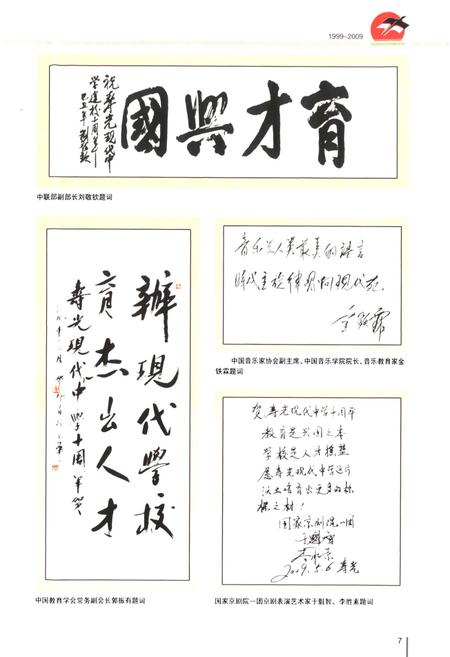 1999-2009
育才興國
祝寿光现代中
学建校十周年
己丑年 刘敬钦
中联部副部长刘敬钦题词
辦現代學校
育杰出人才
寿光現代中学十周年贺
音乐是人类最美的语言
时代主旋律
金铁霖
中国音乐家协会副主席、中国音乐学院院长、音乐教育家金
铁霖题词
贺寿光现代中学十周年
教育是兴国之本
学校是人才摇篮
愿寿光现代中学这片
沃土培育出更多的栋
梁之材!
国家京剧院一团
于魁智
李胜素
2009.5.6 寿光
中国教育学会常务副会长郭振有题词
国家京剧院一团京剧表演艺术家于魁智、李胜素题词
7